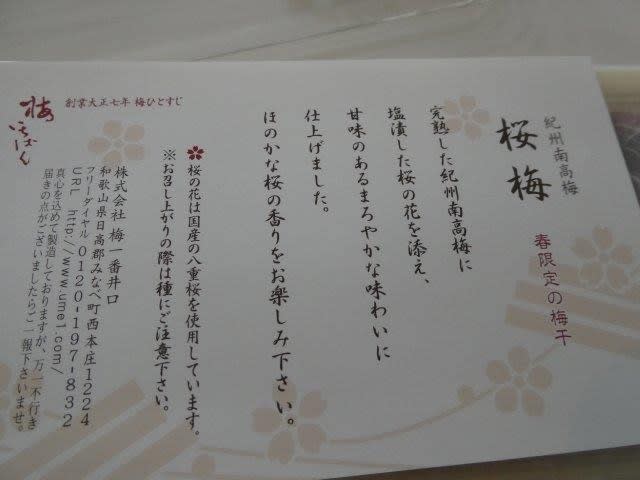 紀州南高梅
桜梅
春限定の梅干
完熟した紀州南高梅に
塩漬した桜の花を添え、
甘味のあるまろやかな味わいに
仕上げました。
ほのかな桜の香りをお楽しみ下さい。
桜の花は国産の八重桜を使用しています。
※お召し上がりの際は種にご注意下さい。
創業大正七年 梅ひとすじ
梅いちばん
株式会社 梅一番井口
和歌山県日高郡みなべ町西本庄1224
フリーダイヤル 0120-197-832
URL http://www.ume1.com/
真心を込めて製造しておりますが、万一不行き
届きの点がございましたらご一報下さいませ。